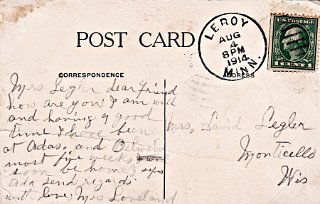 POST CARD
LEROY
AUG
4
8PM
1914
MINN.
U.S. POSTAGE
1 CENT 1
CORRESPONDENCE
Mrs Segler dear friend
how are you? I am well
and having a good
time I have been
at Adas, and
most five weeks
soon be home
Ada send regards
with love, Mrs Loveland
Mrs, David Segler
Monticello
Wis